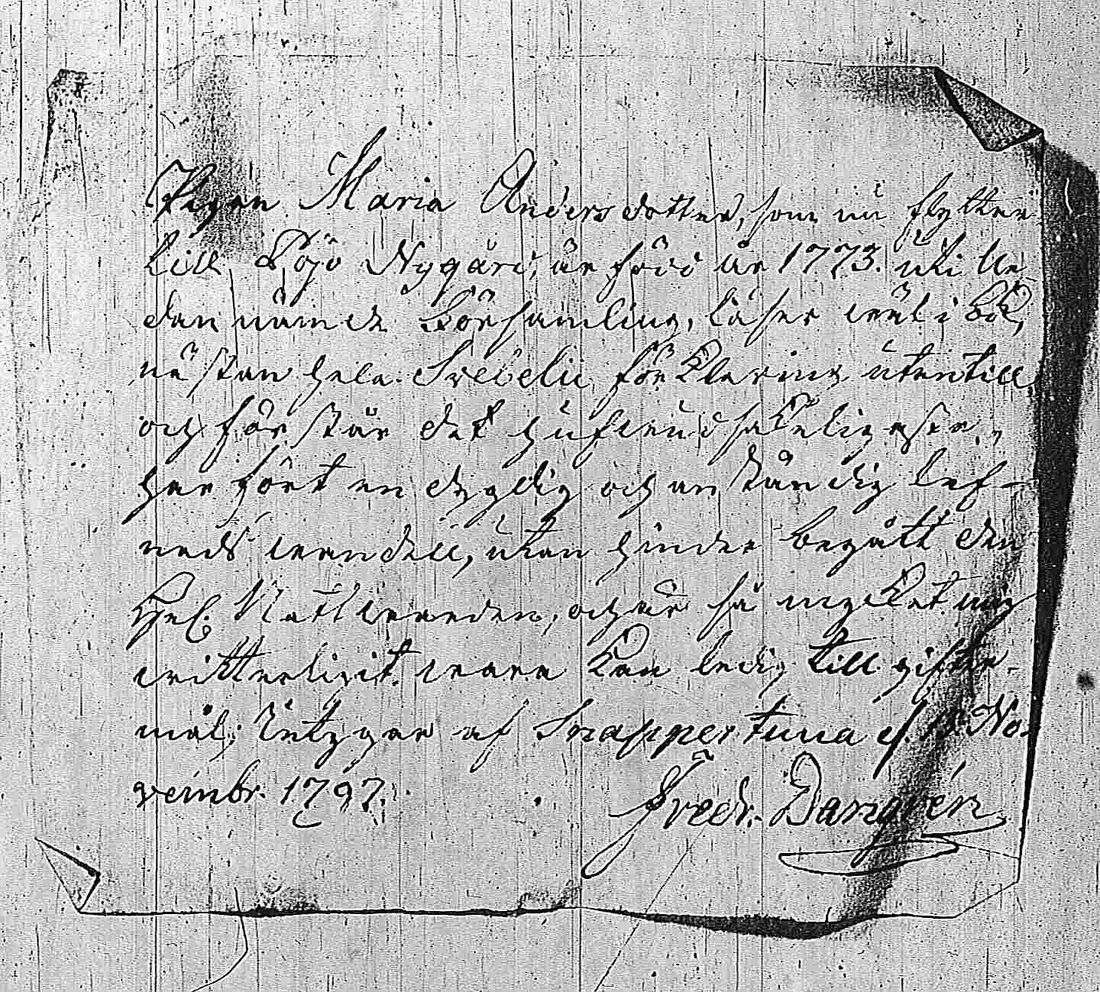 Pigan Maria Andersdotter, som nu flyttar
till Pojo Nygård, är född år 1773. uti ne-
dan nämde Församling, läser wäl i bok,
nästan hela Svebelii förklaring utantill
och förstår det hufwudsakeligaste,
har fört en dygdig och anständig lef-
nads wandell, utan hinder begått den
Hel. Nattwarden, och är så mycket mig
witterligit wara kan ledig till gifter-
mål; Intygar af Snappertuna d. 15 No-
vembr. 1797.
Fredr. Danqvén